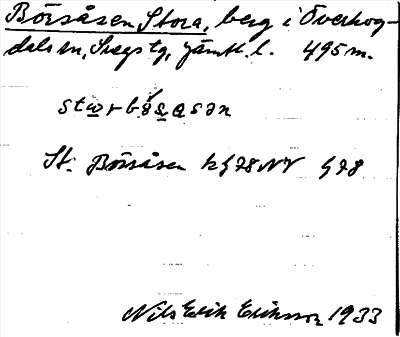 Börsåsen, Stora, berg i Överhog-
dals sn, Svegs tg, Jämtl. l. 495 m.
stωrbö́s̲asən
St. Börsåsen kf 78 NV f 78
Nils Erik Eriksson 1933